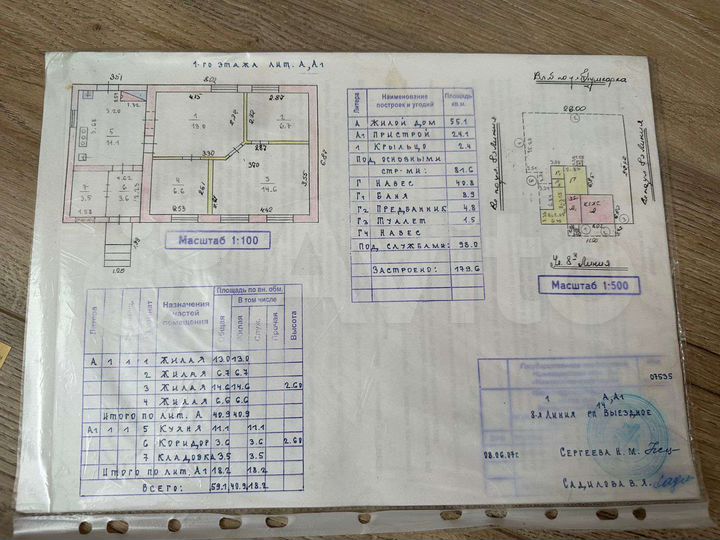 1-го этажа лит. А, А1
3.51
8.02
4.15
2.87
1
13.0
2
6.7
3.20
5
11.1
3.68
3.90
2.87
3.55
7
3.5
6
3.6
4.02
4
6.6
2.61
3
14.6
1.53
2.53
4.42
1.20
Масштаб 1:100
Литера Наименование построек и угодий Площадь кв.м.
А Жилой дом 55.1
А1 Пристрой 24.1
1 Крыльцо 2.4
Под основными
стр-ми: 81.6
Г Навес 40.8
Г1 Баня 8.9
Г2 Предбанник 4.8
Г3 Туалет 1.5
Г4 Навес
Под службами: 98.0
Застроено: 179.6
Ул. 8я Линия
Масштаб 1:500
Назначения частей помещения
Площадь по вн. обм.
В том числе
Общая Жилая Служ. Прочая Высота
А 1 1 1 Жилая 13.0 13.0
2 Жилая 6.7 6.7
3 Жилая 14.6 14.6 2.60
4 Жилая 6.6 6.6
Итого по лит. А 40.9 40.9
А1 1 1 5 Кухня 11.1 11.1
6 Коридор 3.6 3.6 2.60
7 Кладовка 3.5 3.5
Итого по лит. А1 18.2 18.2
Всего: 59.1 40.9 18.2
07535
1 А, А1
14
8-я Линия рп Выездное
08.06.07г.
Сергеева Н. М.
Садилова В. Я.